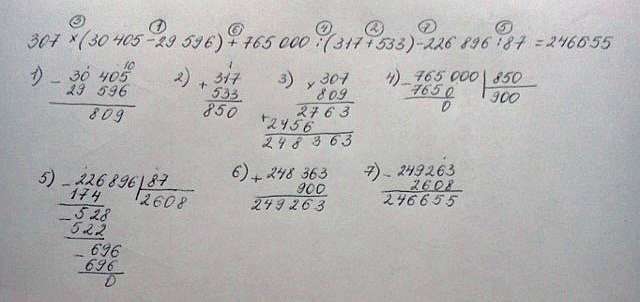 ③ ① ⑥ ④ ② ⑦ ⑤
307 × (30 405 - 29 596) + 765 000 : (317 + 533) - 226 896 : 87 = 246655
1) - 30 405
29 596
809
2) + 317
533
850
3) × 307
809
2763
+ 2456
248363
4) - 765 000 | 850
7650 | 900
0
5) - 226896 | 87
174 | 2608
- 528
522
- 696
696
0
6) + 248 363
900
249263
7) - 249263
2608
246655